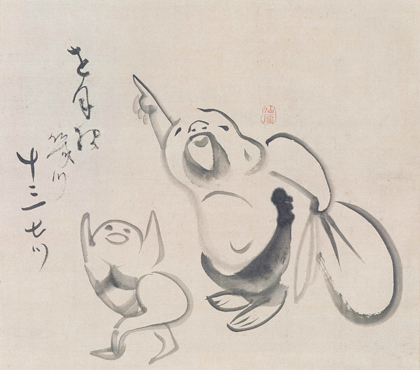 を月様幾ツ
十三七ツ